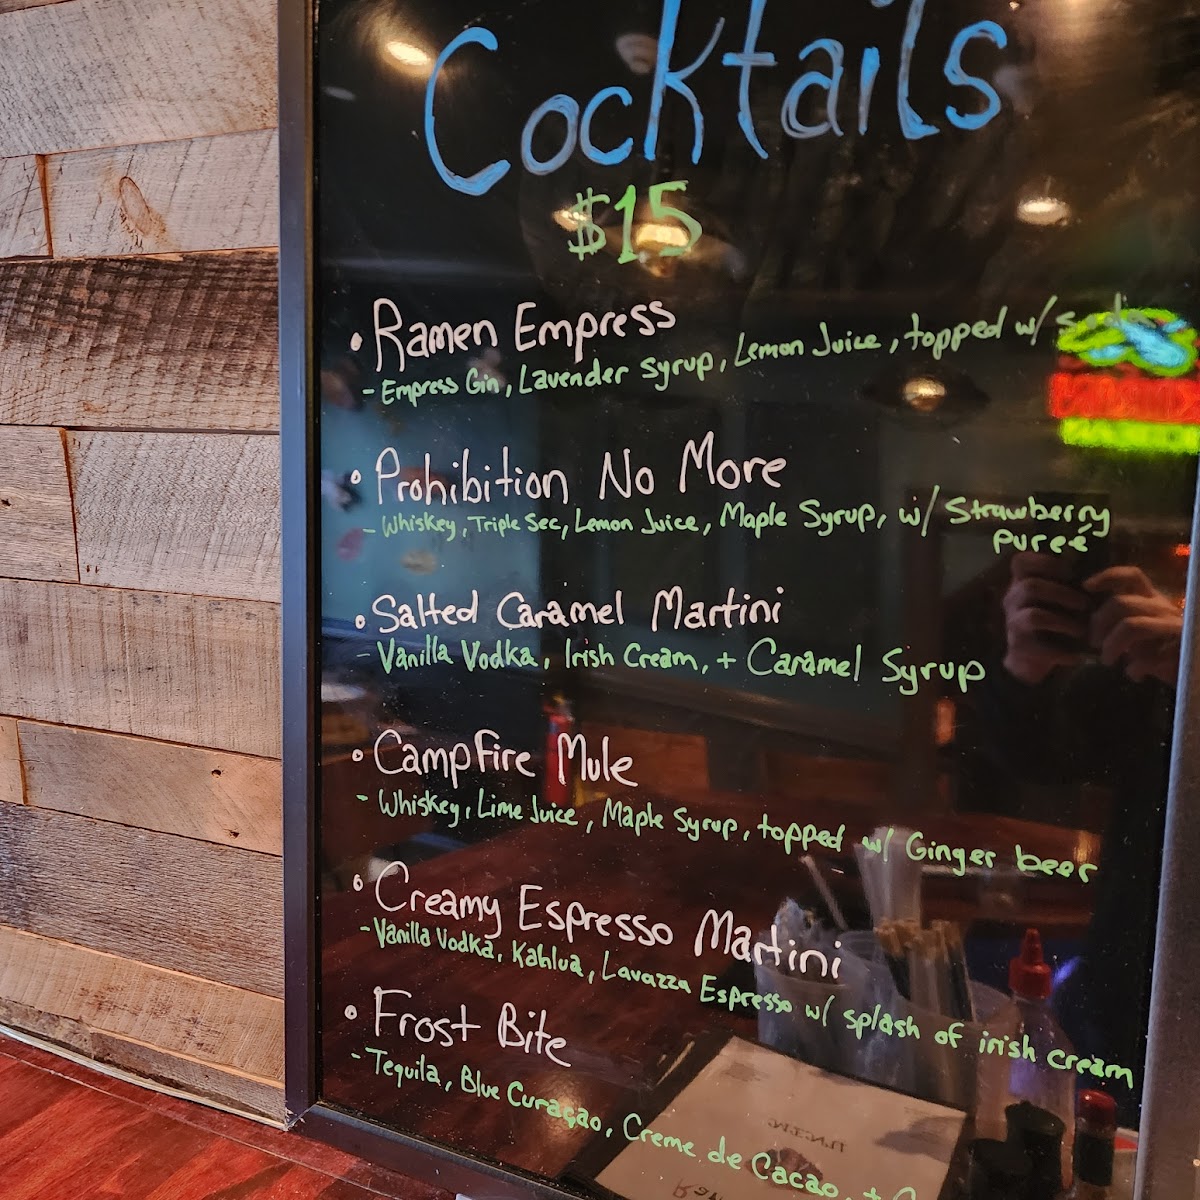 Cocktails
$15
• Ramen Empress
- Empress Gin, Lavender Syrup, Lemon Juice, topped w/
• Prohibition No More
- Whiskey, Triple Sec, Lemon Juice, Maple Syrup, w/ Strawberry
pureé
• Salted Caramel Martini
- Vanilla Vodka, Irish Cream, + Caramel Syrup
• Campfire Mule
- Whiskey, Lime Juice, Maple Syrup, topped w/ Ginger beer
• Creamy Espresso Martini
- Vanilla Vodka, Kahlua, Lavazza Espresso w/ splash of irish cream
• Frost Bite
- Tequila, Blue Curaçao, Creme de Cacao, +